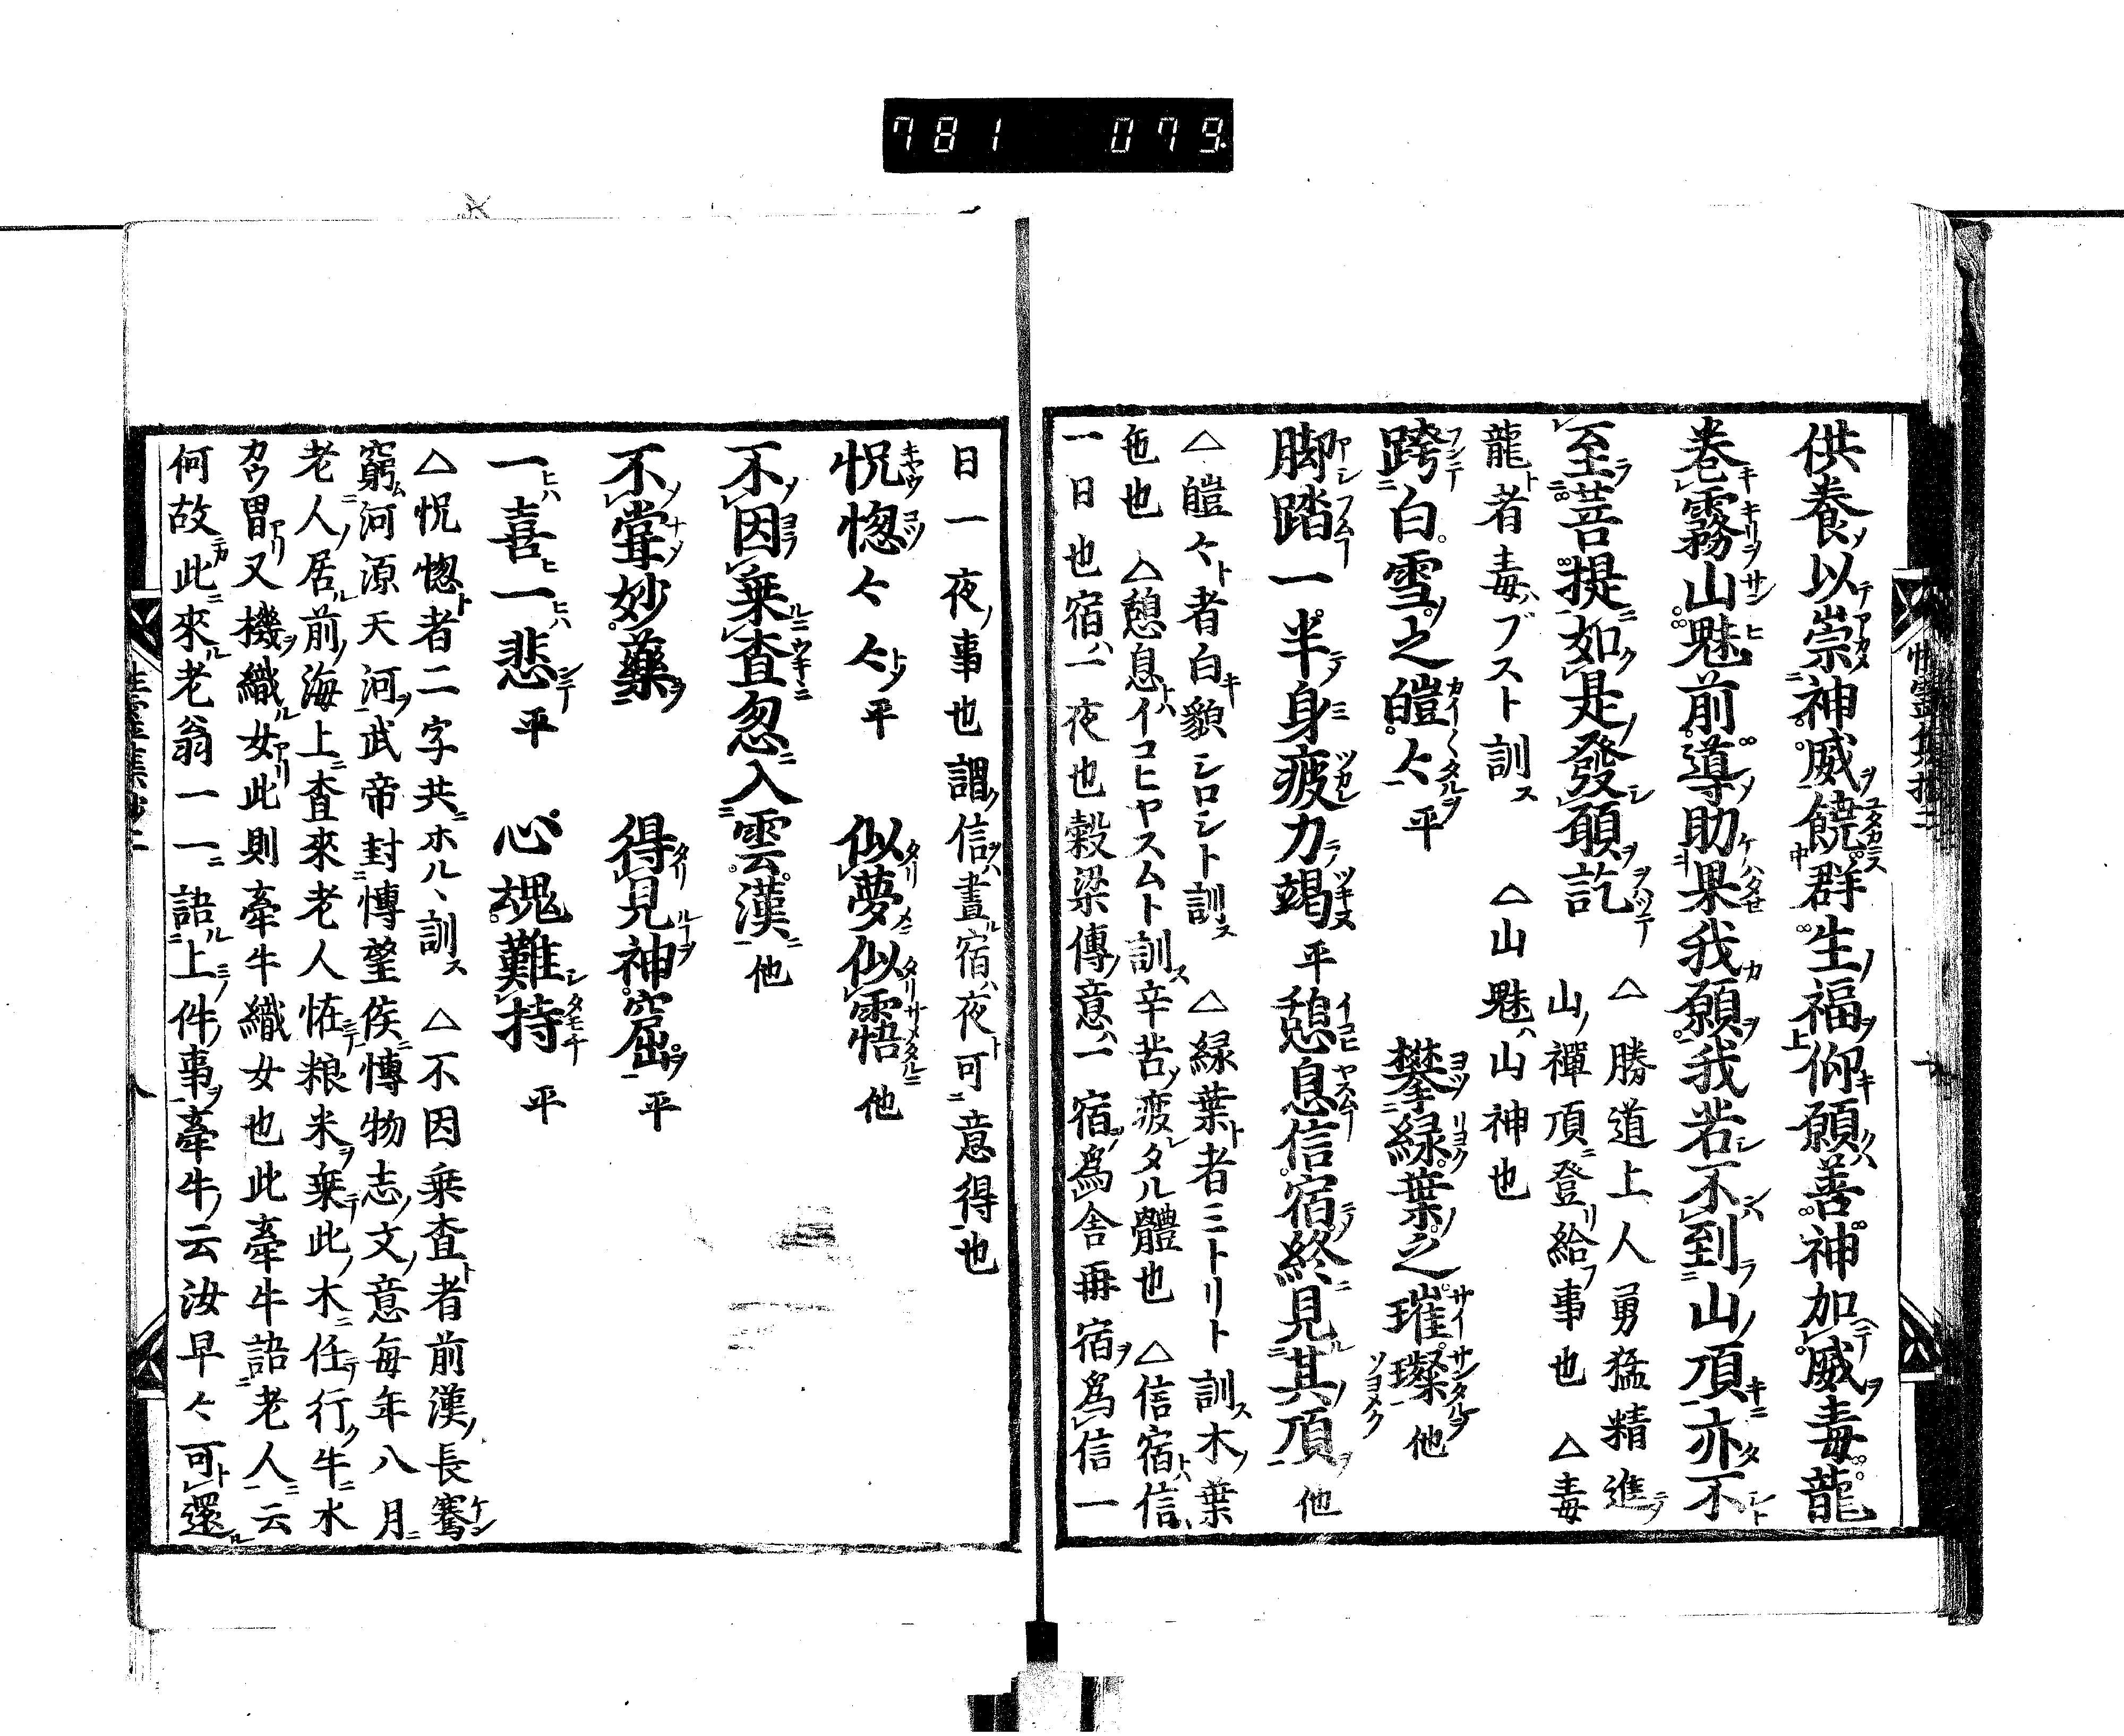 781 079
供養以崇神威饒群生福仰願善神加威毒龍
卷霧山魅前導助果我願我若不到山頂亦不
至菩提如是發願訖 △勝道上人勇猛精進
山禪頂登リ給フ事也 △毒
龍ト者毒ハブスト訓ス △山魅ハ山神也
跨白雪之皚々平 攀緑葉之璀璨他
脚踏一半身疲力竭平憩息信宿終見其頂他
△皚々ト者白キ貌シロシト訓ス △緑葉ト者ミトリト訓ス木ノ葉
色也 △憩息トハイコヒヤスムト訓ス辛苦ノ疲レタル體也 △信宿トハ信ハ
一日也宿ハ一夜也穀梁傳ノ意ハ一宿ヲ爲舍再宿ヲ爲信一
日一夜ノ事也謂ク信ヲハ晝ル宿ハ夜ト可ニ意得也
怳惚々々平 似夢似寤他
不因乗査忽入雲漢他
不甞妙藥 得見神窟平
一喜一悲平 心魂難持平
△怳惚ト者二字共ニホルヽ訓ス △不因乗査ト者前漢ノ長騫
窮ム河源天河ヲ武帝封ニ博望侯ニ博物志ノ文ノ意毎年八月ニ
老人ノ居ル前ノ海上ニ査來老人恠テ粮米ヲ乗テ此ノ木ニ任テ行ク牛ニ水
カウ男アリ又機ヲ織ル女アリ此則牽牛織女也此牽牛語ニ老人ニ云
何故ニカ此ニ來ル老翁一一ニ語ル上ミノ件ノ事ヲ牽牛ノ云汝早々可ト還ル